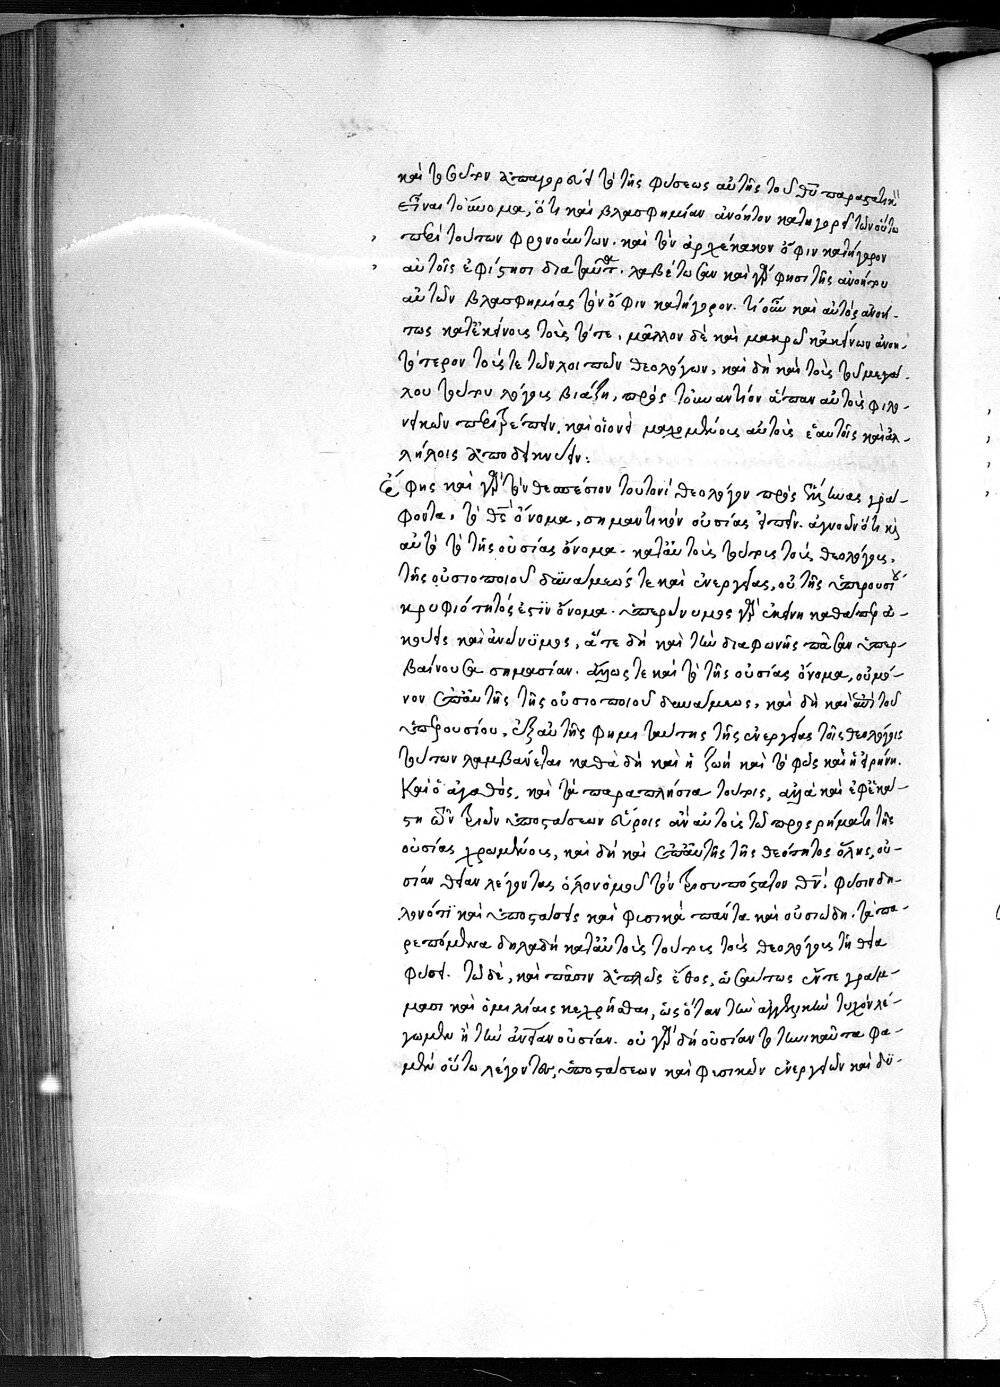 καὶ τοῦτον ἀπαγορεύει τὸ τῆς φύσεως αὐτῆς τοῦ θῦ παραστατικὸν
εἶναι τὸ ὄνομα, ὅτι καὶ βλασφημίαν ἀνόητον κατηγορεῖ τῶν οὕτω
περὶ τούτων φρονούντων. καὶ τὸν ἀρχέκακον ὄφιν κατήγορον
αὐτοῖς ἐφίστησι διὰ ταῦτα. λαβέτωσαν καὶ γάρ φησι τῆς ἀνοήτου
αὐτῶν βλασφημίας τὸν ὄφιν κατήγορον. τί οὖν καὶ αὐτὸς ἀνοή-
τως κατ' ἐκείνοις τοῖς τότε, μᾶλλον δὲ καὶ μακρῶ κἀκείνων ἀνοη-
τότερον τούς τε τῶν λοιπῶν θεολόγων, καὶ δὴ καὶ τοὺς τοῦ μεγά-
λου τούτου λόγους βιάζη, πρὸς τοὐναντίον ἅπαν αὐτοὺς φιλο-
νεικῶν περιτρέπειν, καὶ οἱονεὶ μαχομένους αὐτοὺς ἑαυτοῖς καὶ ἀλ-
λήλοις ἀποδεικνύειν:
Ἔφης καὶ γὰρ τὸν θεσπέσιον τουτονὶ θεολόγον πρός τινας γρά-
φοντα, τὸ θς ὄνομα, σημαντικὸν οὐσίας εἰπεῖν. ἀγνοῶν ὅτι καὶ
αὐτὸ τὸ τῆς οὐσίας ὄνομα. κατ' αὐτοὺς τούτους τοὺς θεολόγους,
τῆς οὐσιοποιοῦ δυνάμεώς τε καὶ ἐνεργείας, οὐ τῆς ὑπερουσίου
κρυφιότητός ἐστιν ὄνομα. ὑπερώνυμος γὰρ ἐκείνη καθάπερ ἀ-
κούεις καὶ ἀνώνυμος, ἅτε δὴ καὶ τὴν διὰ φωνῆς πᾶσαν ὑπερ-
βαίνουσα σημασίαν. ἄλλως τε καὶ τὸ τῆς οὐσίας ὄνομα, οὐ μό-
νον ἐπ' αὐτῆς τῆς οὐσιοποιοῦ δυνάμεως, καὶ δὴ καὶ ἀντὶ τοῦ
ὑπερουσίου, ἐξ αὐτῆς φημι ταύτης τῆς ἐνεργείας τοῖς θεολόγοις
τούτων λαμβάνεται καθὰ δὴ καὶ ἡ ζωὴ καὶ τὸ φῶς καὶ ἡ εἰρήνη.
Καὶ ὁ ἀγαθὸς, καὶ τὰ παραπλήσια τούτοις, ἀλλὰ καὶ ἐφ' ἑκά-
στη τῶν τριῶν ὑποστάσεων εὕροις ἂν αὐτοὺς τῶ προσρήματι τῆς
οὐσίας χρωμένους, καὶ δὴ καὶ ἐπ' αὐτῆς τῆς θεότητος ὅλης, οὐ-
σίαν θείαν λέγοντας ὁλονόμου τὸν τρισυπόστατον θν. φύσιν δη-
λονότι καὶ ὑποστάσεις καὶ φυσικὰ πάντα καὶ οὐσιώδη. τὰ πα-
ρεπόμενα δηλαδὴ κατ' αὐτοὺς τούτους τοὺς θεολόγους τῆ θεία
φύσει. τῶ δὲ, καὶ πᾶσιν ἁπλῶς ἔθος, ὡσαύτως ἔν τε γράμ-
μασι καὶ ὁμιλίαις κεχρῆσθαι, ὡς ὅταν τὴν ἀγγελικὴν τυχὸν λέ-
γωμεν ἢ τὴν ἀνθρωπείαν οὐσίαν. οὐ γὰρ δὴ οὐσίαν τότε φα-
μὲν οὕτω λέγοντες, ὑποστάσεων καὶ φυσικῶν ἐνεργειῶν καὶ δυ-